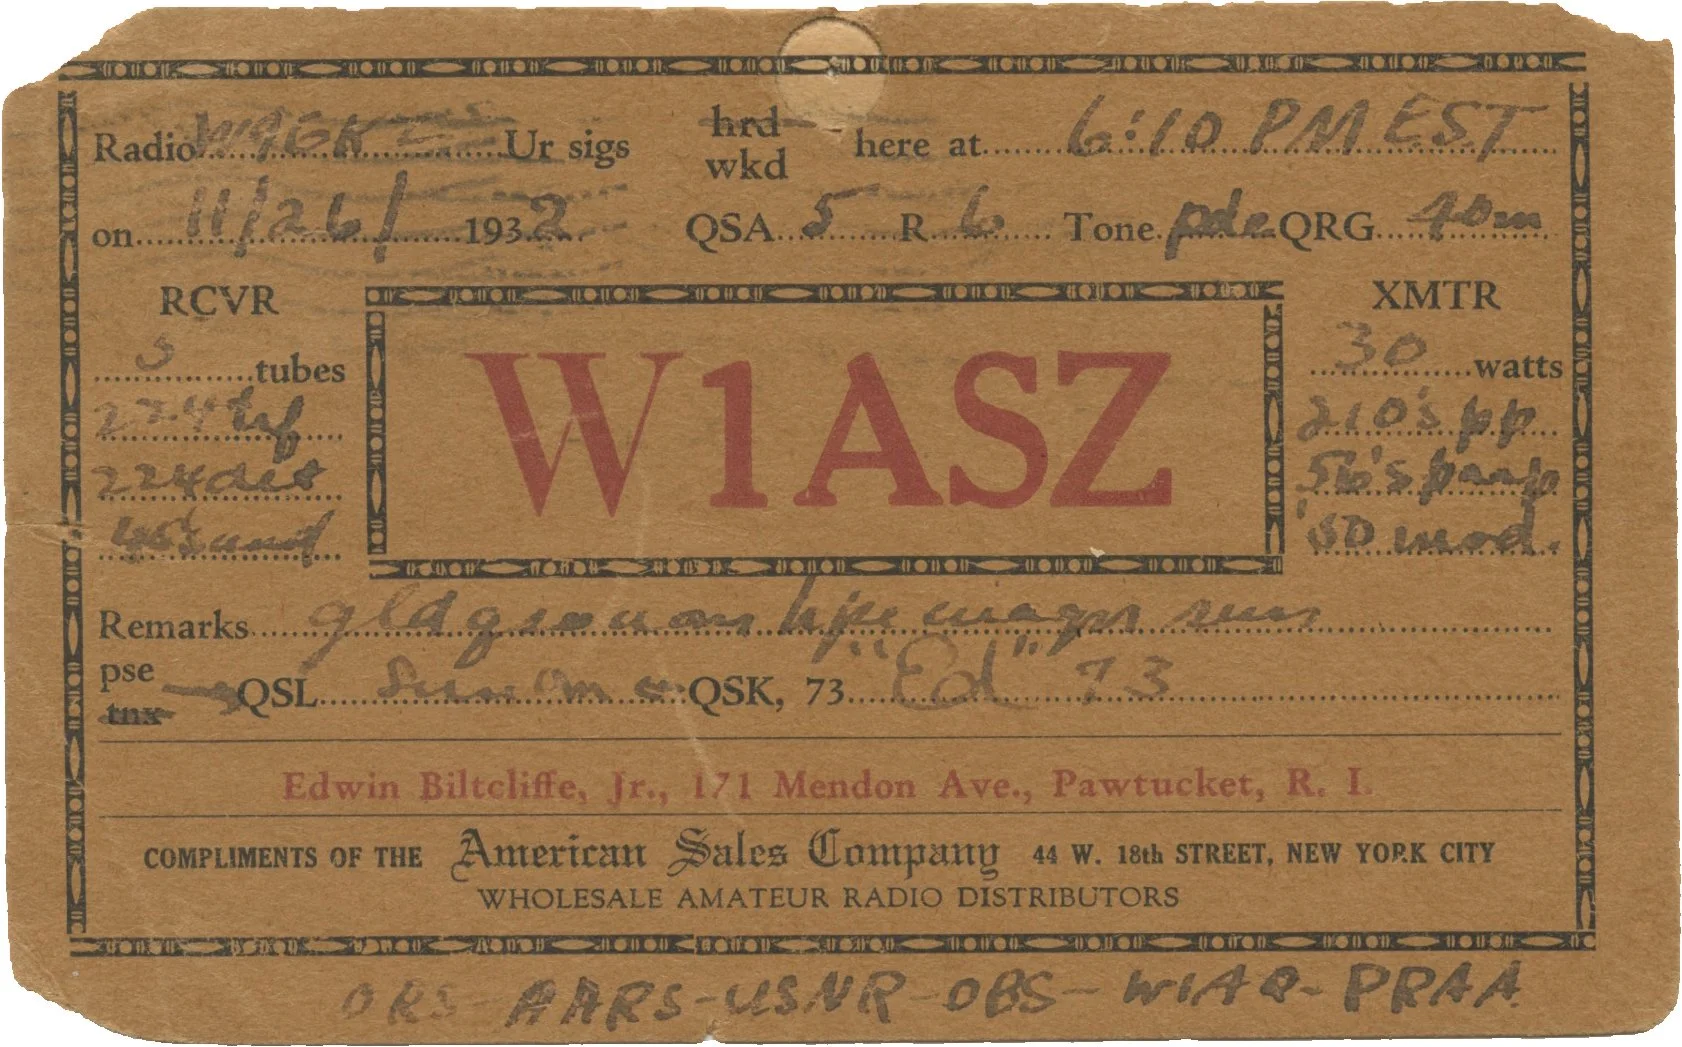 Radio W9GK Ur sigs hrd wkd here at 6:10 PM EST
on 11/26/ 1932 QSA 5 R 6 Tone pdc QRG 40m
RCVR
5 tubes
224 trf
224 det
45's aud
W1ASZ
XMTR
30 watts
210's pp
56's pp
'50 mod.
Remarks gld qso u om hpe cuagn
pse tnx QSL QSK, 73 "Ed" 73
Edwin Biltcliffe, Jr., 171 Mendon Ave., Pawtucket, R. I.
COMPLIMENTS OF THE American Sales Company 44 W. 18th STREET, NEW YORK CITY
WHOLESALE AMATEUR RADIO DISTRIBUTORS
ORS - AARS - USNR - OBS - W1AQ - PRAA